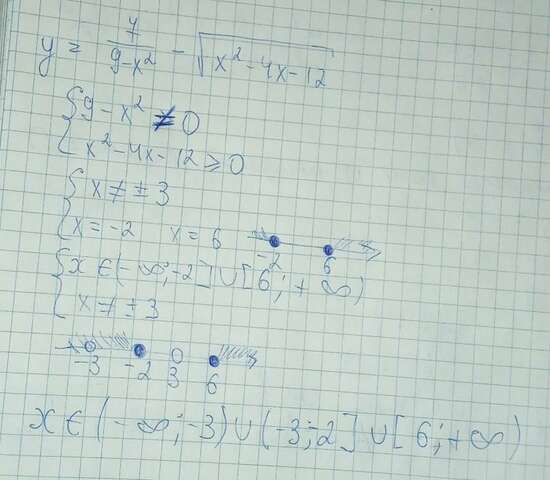 y = 7/(9-x²) - √(x²-4x-12)
{ 9-x² ≠ 0
{ x²-4x-12 ≥ 0
{ x ≠ ±3
{ x = -2 x = 6
-2 6
{ x ∈ (-∞; -2] ∪ [6; +∞)
{ x ≠ ±3
-3 -2 3 6
x ∈ (-∞; -3) ∪ (-3; -2] ∪ [6; +∞)